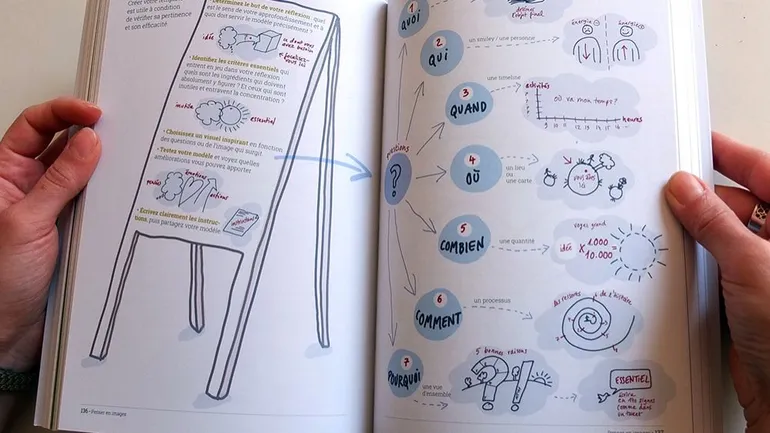 Créer votre
est utile à condition
de vérifier sa pertinence
et son efficacité
• Déterminez le but de votre réflexion : quel
est le sens de votre approfondissement et à
quoi doit servir le modèle précisément ?
idée
• Identifiez les critères essentiels qui
entrent en jeu dans votre réflexion :
quels sont les ingrédients qui doivent
absolument y figurer ? Et ceux qui sont
inutiles et entravent la concentration ?
inutile
essentiel
• Choisissez un visuel inspirant en fonction
des questions ou de l'image qui surgit
• Testez votre modèle et voyez quelles
améliorations vous pouvez apporter
pensées
émotions
actions
• Écrivez clairement les instruc-
tions, puis partagez votre modèle
instructions
136 - Penser en images
questions
?
1
QUOI
projet final
2
QUI
un smiley / une personne
énergie
énergie
3
QUAND
une timeline
activités
où va mon temps ?
heures
4
OÙ
un lieu
ou
une carte
vous êtes
là
5
COMBIEN
une quantité
voyez grand
idée
x 1000
10.000
6
COMMENT
un processus
les raisons
de l'histoire
7
POURQUOI
une vue
d'ensemble
5 bonnes raisons
ESSENTIEL
écrire
en 140 signes
comme dans
un tweet
137